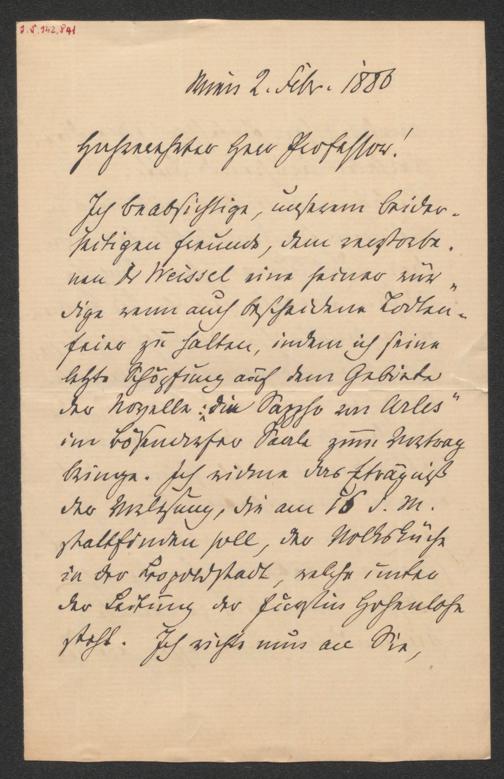 I.N. 142.841
Wien 2. Febr. 1886
Hochverehrter Herr Professor!
Ich beabsichtige, unserem beider-
seitigen Freunde, dem verstorbe-
nen Dr Weissel eine seiner wür-
dige wenn auch bescheidene Todten-
feier zu halten, indem ich seine
letzte Schöpfung auf dem Gebiete
der Novelle: "die Sappho von Arles"
im Bösendorfer Saale zum Vortrag
bringe. Ich widme das Erträgniß
der Vorlesung, die am 16 d. M.
stattfinden soll, der Volksküche
in der Leopoldstadt, welche unter
der Leitung der Fürstin Hohenlohe
steht. Ich richte nun an Sie,